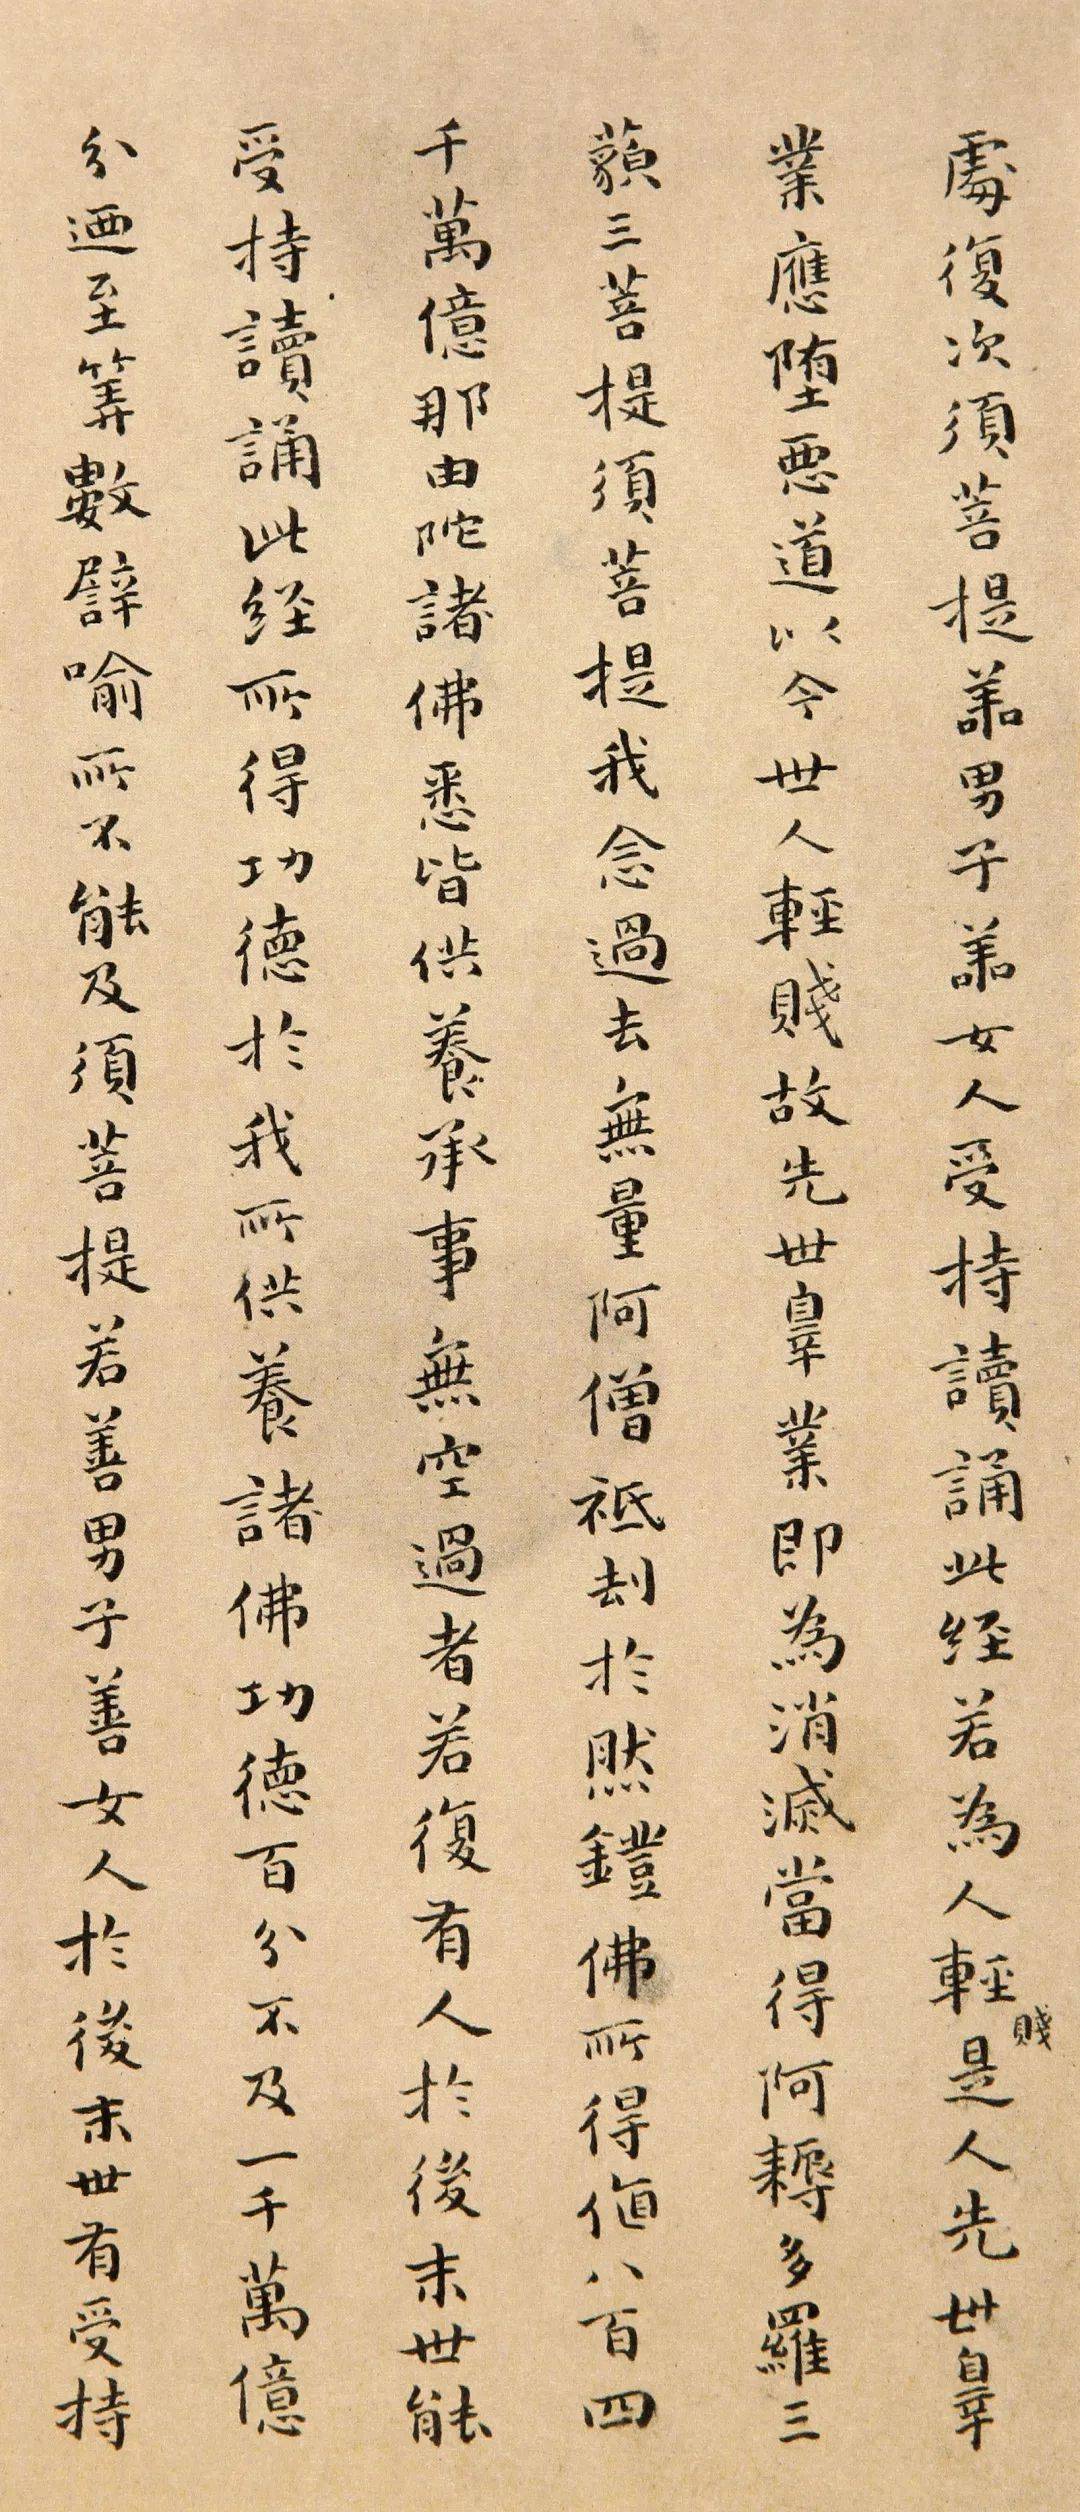 處復次須菩提善男子善女人受持讀誦此経若為人輕賤是人先世辠
業應堕惡道以今世人輕賤故先世辠業即為消滅當得阿耨多羅三
藐三菩提須菩提我念過去無量阿僧祇劫於然鐙佛所得値八百四
千萬億那由陀諸佛悉皆供養承事無空過者若復有人於後末世能
受持讀誦此経所得功德於我所供養諸佛功德百分不及一千萬億
分迺至筭數譬喻所不能及須菩提若善男子善女人於後末世有受持